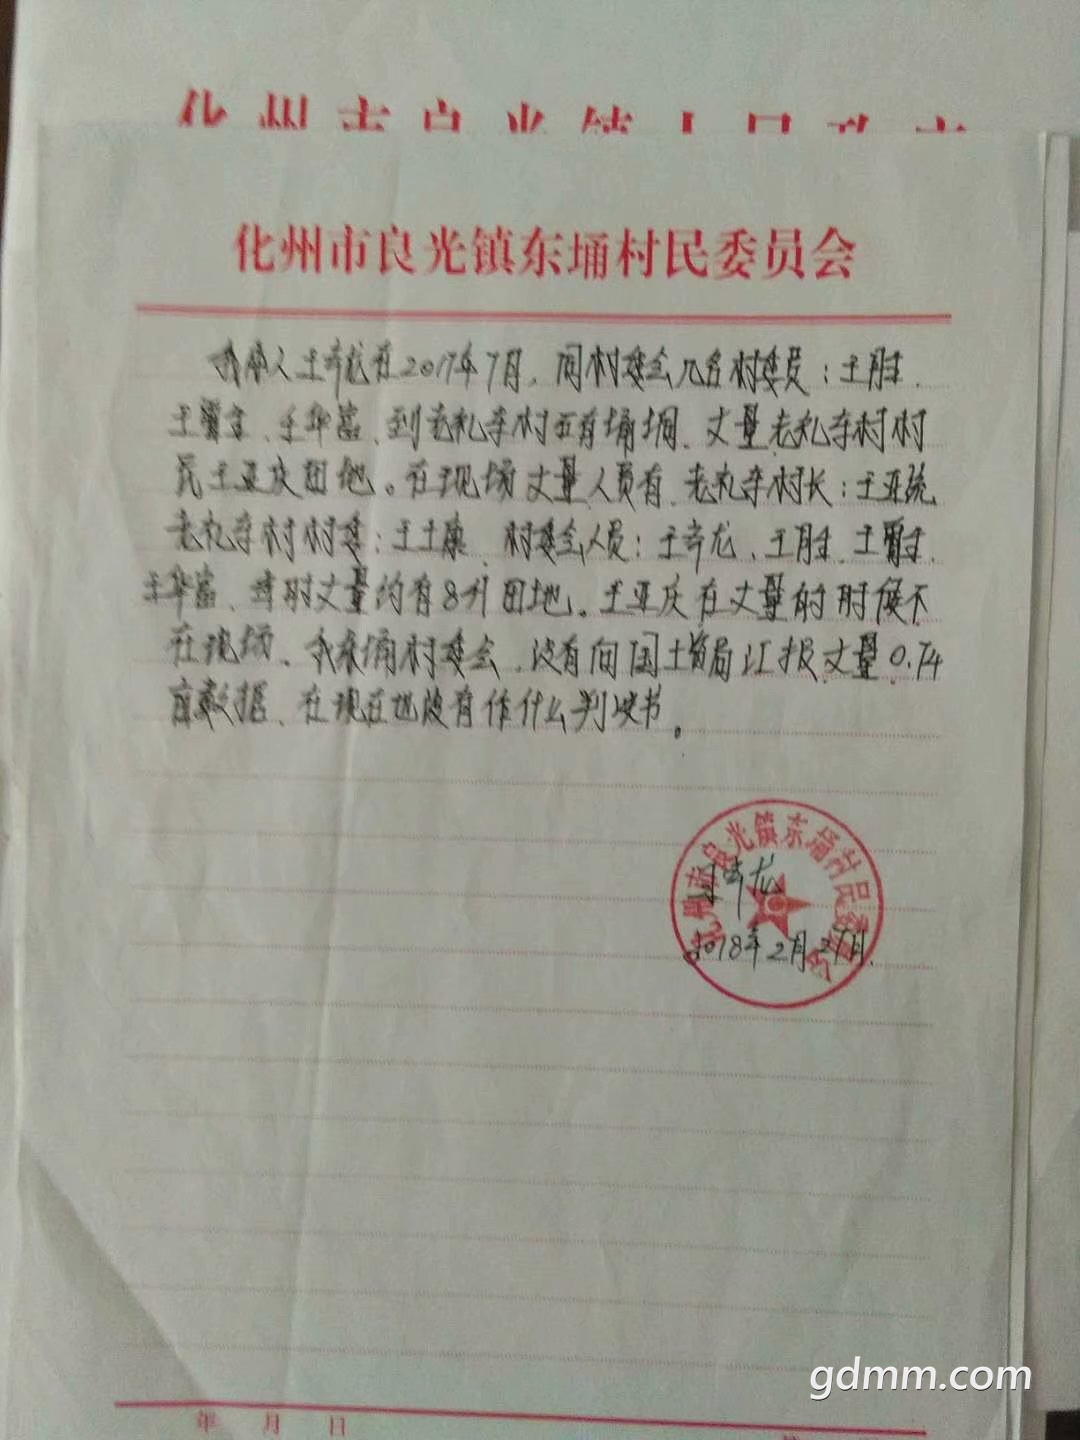 化州市良光镇东埇村民委员会
我本人王奇龙在2017年7月,同村委会几名村委员:王胜.
王华富、到老札寺村西存埇垌、丈量老札寺村村
民王亚庆田地。在现场丈量人员有、老札寺村长:王亚统
老札寺村村委:王土康 村委会人员:王奇龙、王胜、
王华富、当时丈量约有8升田地。王亚庆在丈量的时候不
在现场、我东埇村委会、没有向国土资局汇报丈量0.74
亩数据、在现在也没有作什么判决书。
化州市良光镇东埇村民委员会
王奇龙
2018年2月21日.
年 月 日
gdmm.com